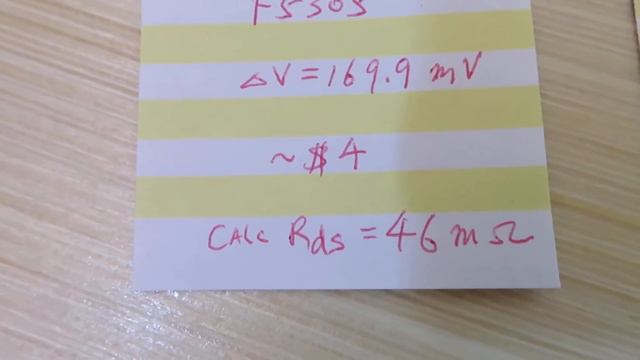 F5305
ΔV = 169.9 mV
~ $4
CALC Rds = 46 mΩ